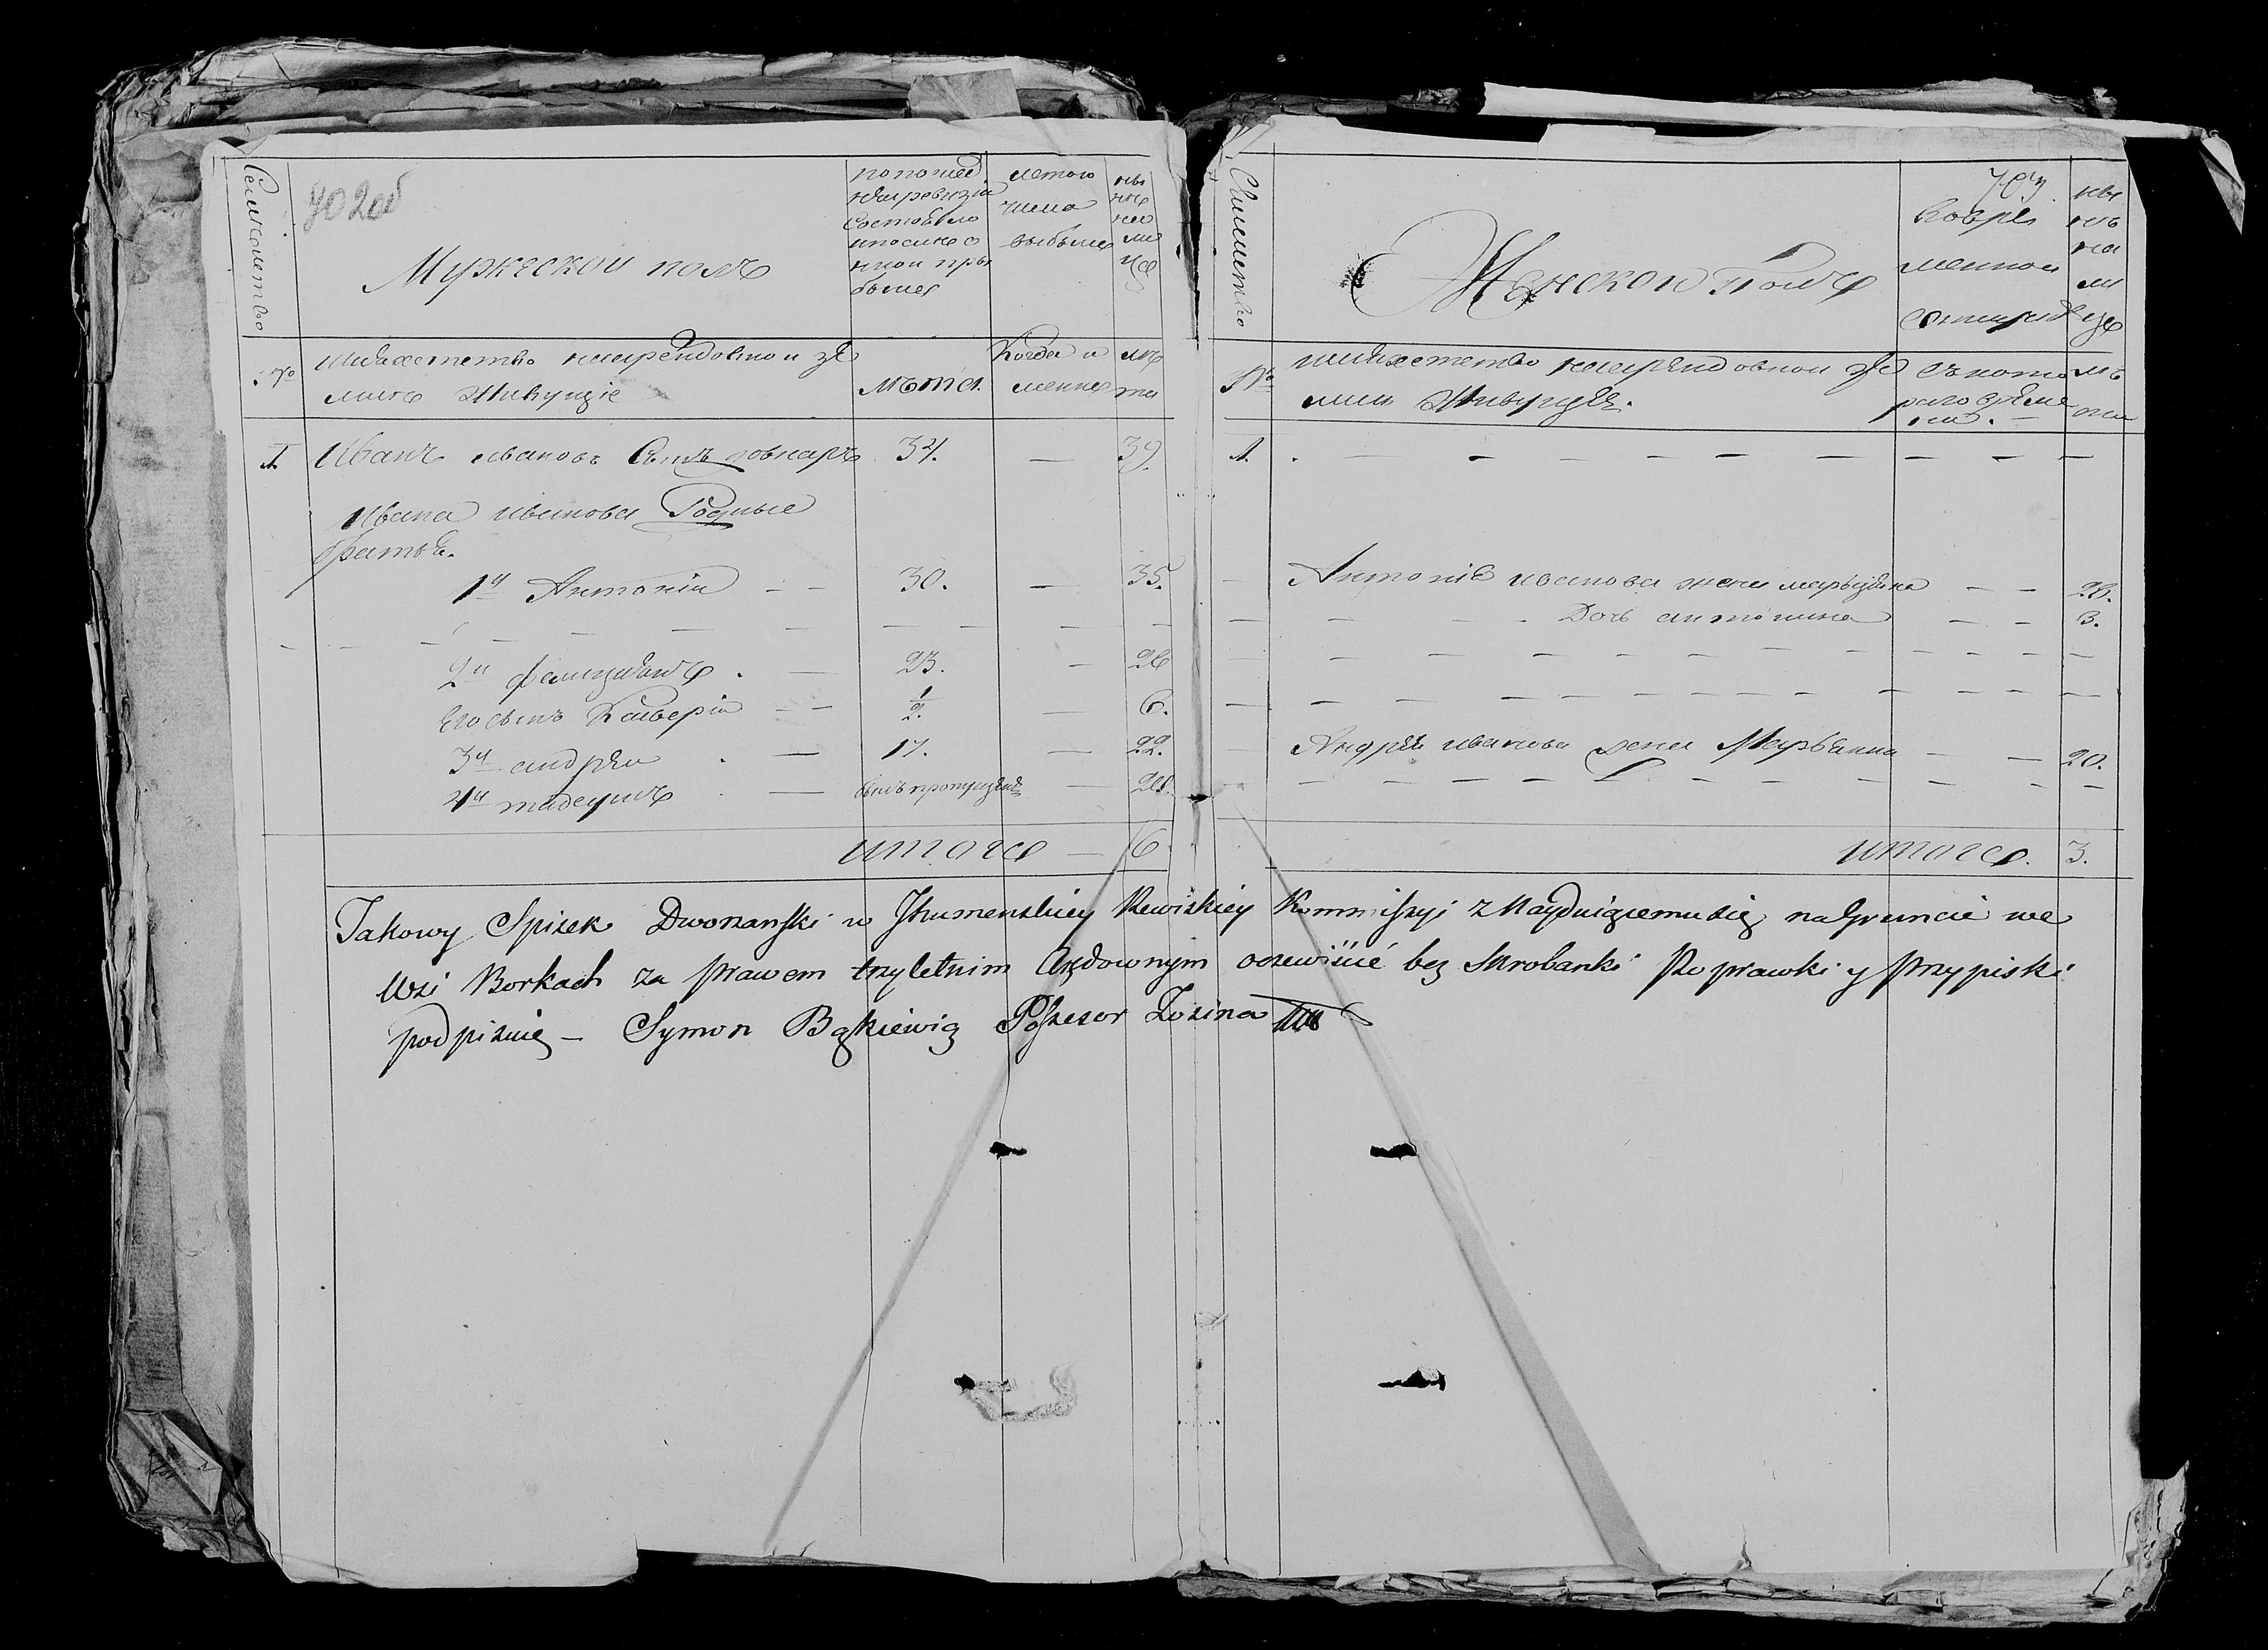 702об
Семейство
Мужескои полъ
по послед
неи ревизіи
состояло
и после о
нои при
было
ис того
числа
выбыло
ны
не
на
ли
це
№
Шляхетство на арендовнои зе
мле живущіе
Лѣта.
Когда и
менно
лѣ
та
1 Иванъ ивановъ Сынъ довнаръ 34. — 39.
Ивана иванова Родные
братья.
1й Антоніи — — 30. — 35.
2й фелиціянъ . — 23. — 28
Его сынъ Ксаверіи — — 1/2. — 6.
3й андреи . — 17. — 22.
4й тадеушъ . — былъ пропущенъ — 20.
итого — 6
703.
Семейство
Женскои Полъ
Во вре
меннои
отлучке
ны
нѣ
на
ли
це
№
шляхетство на арендовнои зе
мли Живущее.
съ кото
раго време
ни. —
лѣ
та
1. . — — — — — — — — — —
— Антонія иванова жена марьцяна — — 28.
Дочь антонина — — 3.
— Андрея иванова жена Марьянна — — 20.
итого. 3.
Takowy Spisek Dworzanski w Jhumenskiey Rewizkiey Kommissyi znayduiącemu się na Gruncie we
Wsi Borkach za prawem trzyletnim Arędownym oczewiscié bez Skrobanki Poprawki y przypiski
podpisuię — Symon Bąkiewicz Possesor Łosina